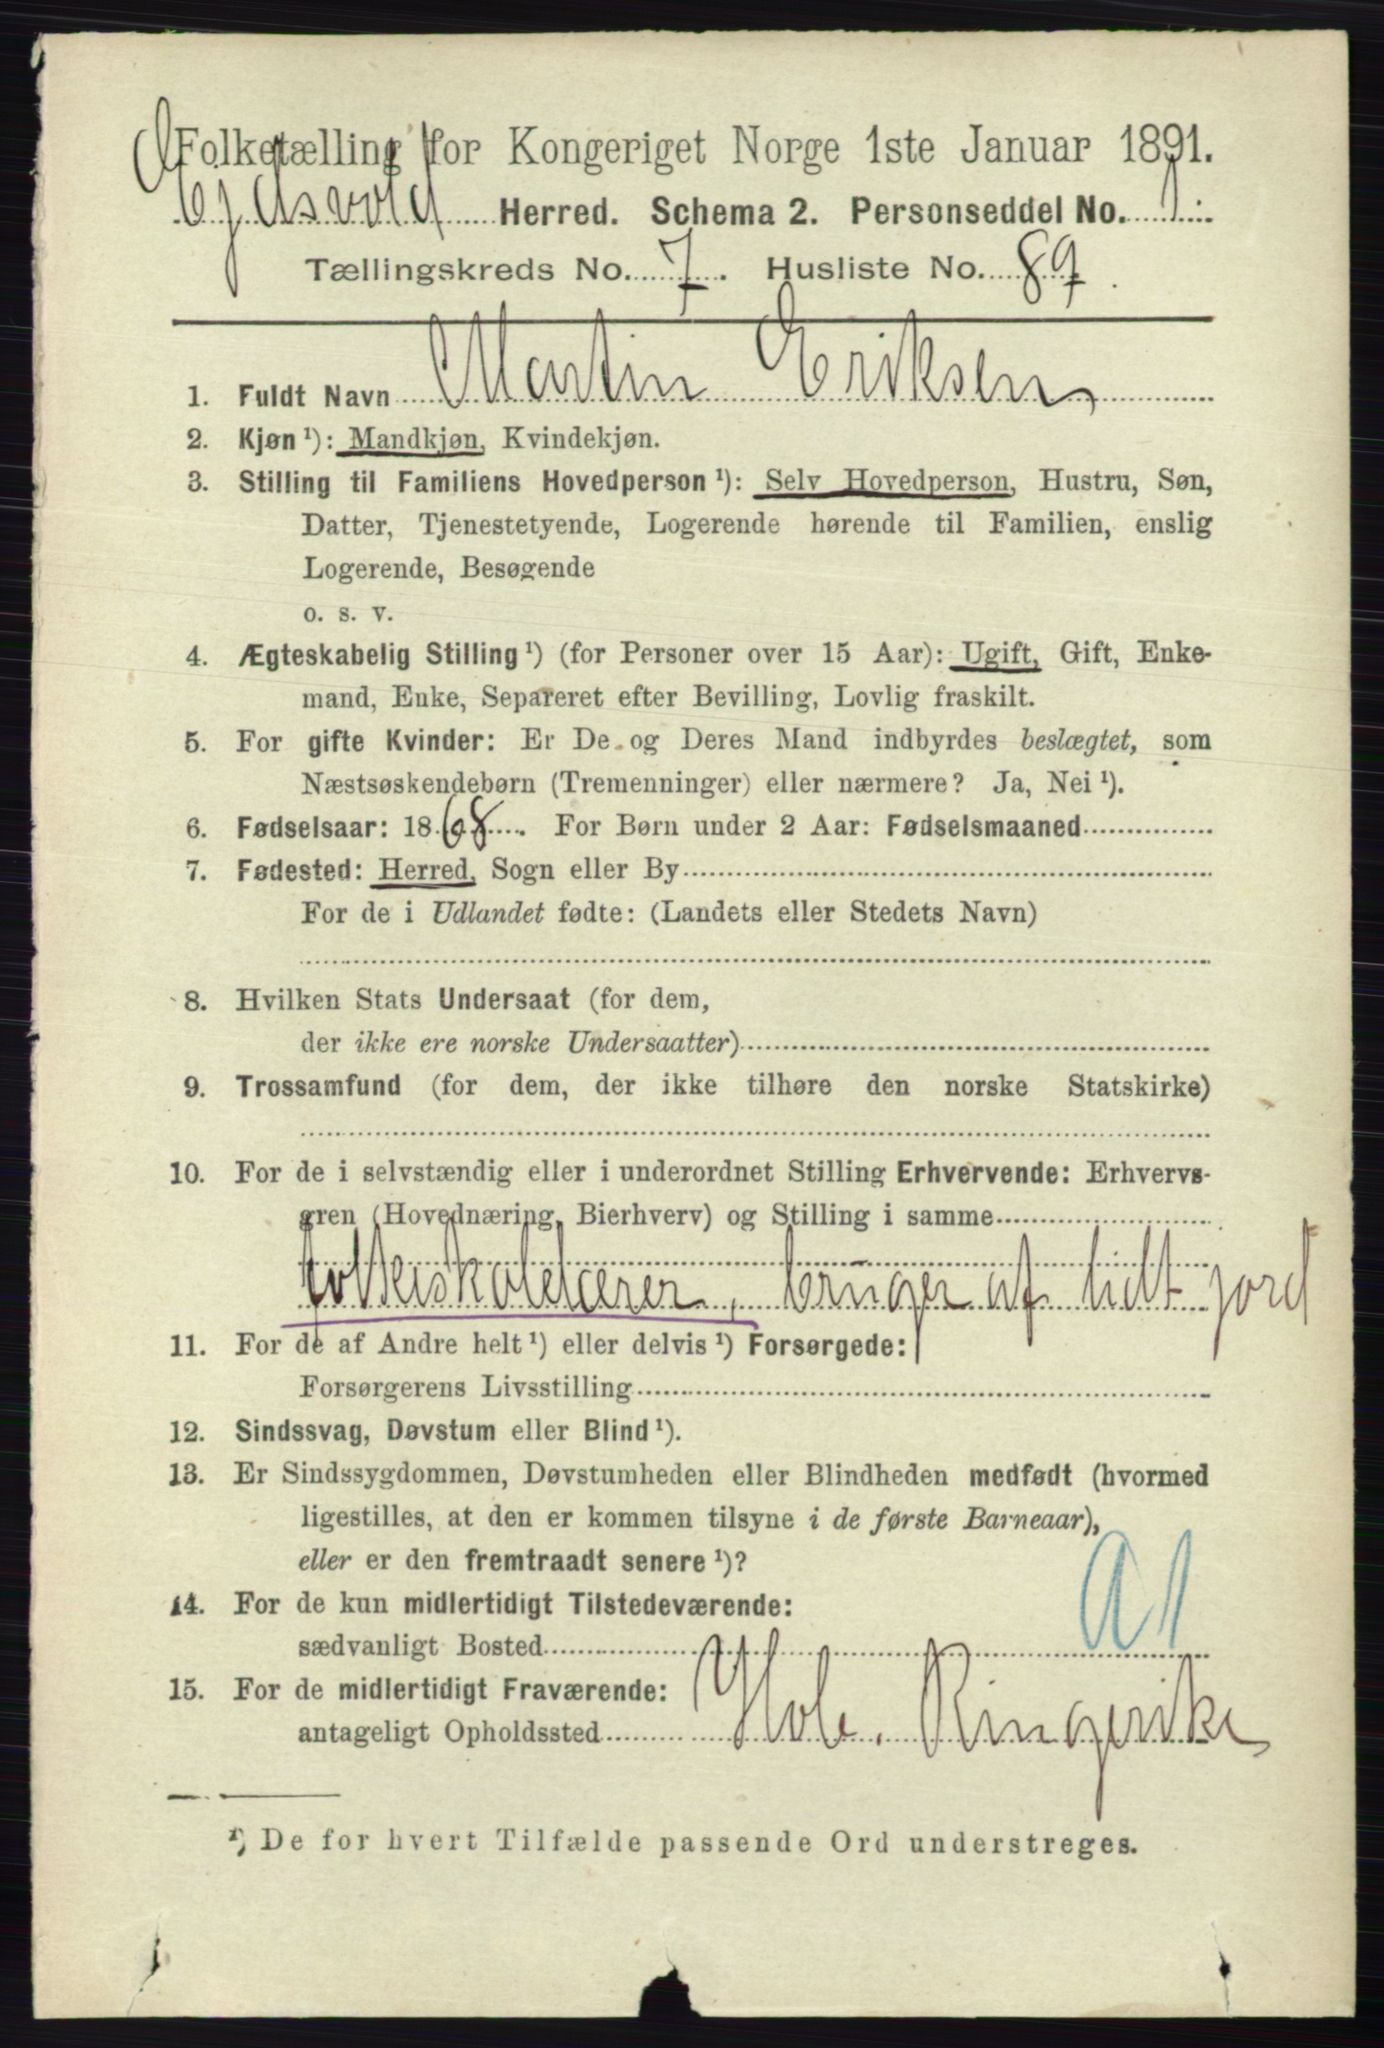 Folketælling for Kongeriget Norge 1ste Januar 1891.
Eidsvold Herred. Schema 2. Personseddel No. 1
Tællingskreds No. 7. Husliste No. 89.
1. Fuldt Navn Martin Eriksen
2. Kjøn ¹): Mandkjøn, Kvindekjøn.
3. Stilling til Familiens Hovedperson ¹): Selv Hovedperson, Hustru, Søn,
Datter, Tjenestetyende, Logerende hørende til Familien, enslig
Logerende, Besøgende
o. s. v.
4. Ægteskabelig Stilling ¹) (for Personer over 15 Aar): Ugift, Gift, Enke-
mand, Enke, Separeret efter Bevilling, Lovlig fraskilt.
5. For gifte Kvinder: Er De og Deres Mand indbyrdes beslægtet, som
Næstsøskendebørn (Tremenninger) eller nærmere? Ja, Nei ¹).
6. Fødselsaar: 1868. For Børn under 2 Aar: Fødselsmaaned
7. Fødested: Herred, Sogn eller By
For de i Udlandet fødte: (Landets eller Stedets Navn)
8. Hvilken Stats Undersaat (for dem,
der ikke ere norske Undersaatter)
9. Trossamfund (for dem, der ikke tilhøre den norske Statskirke)
10. For de i selvstændig eller i underordnet Stilling Erhvervende: Erhvervs-
gren (Hovednæring, Bierhverv) og Stilling i samme
folkeskolelærer, bruger af lidt jord
11. For de af Andre helt ¹) eller delvis ¹) Forsørgede:
Forsørgerens Livsstilling
12. Sindssvag, Døvstum eller Blind ¹).
13. Er Sindssygdommen, Døvstumheden eller Blindheden medfødt (hvormed
ligestilles, at den er kommen tilsyne i de første Barneaar),
eller er den fremtraadt senere ¹)?
a 1
14. For de kun midlertidigt Tilstedeværende:
sædvanligt Bosted
15. For de midlertidigt Fraværende:
antageligt Opholdssted Hole, Ringerike
¹) De for hvert Tilfælde passende Ord understreges.